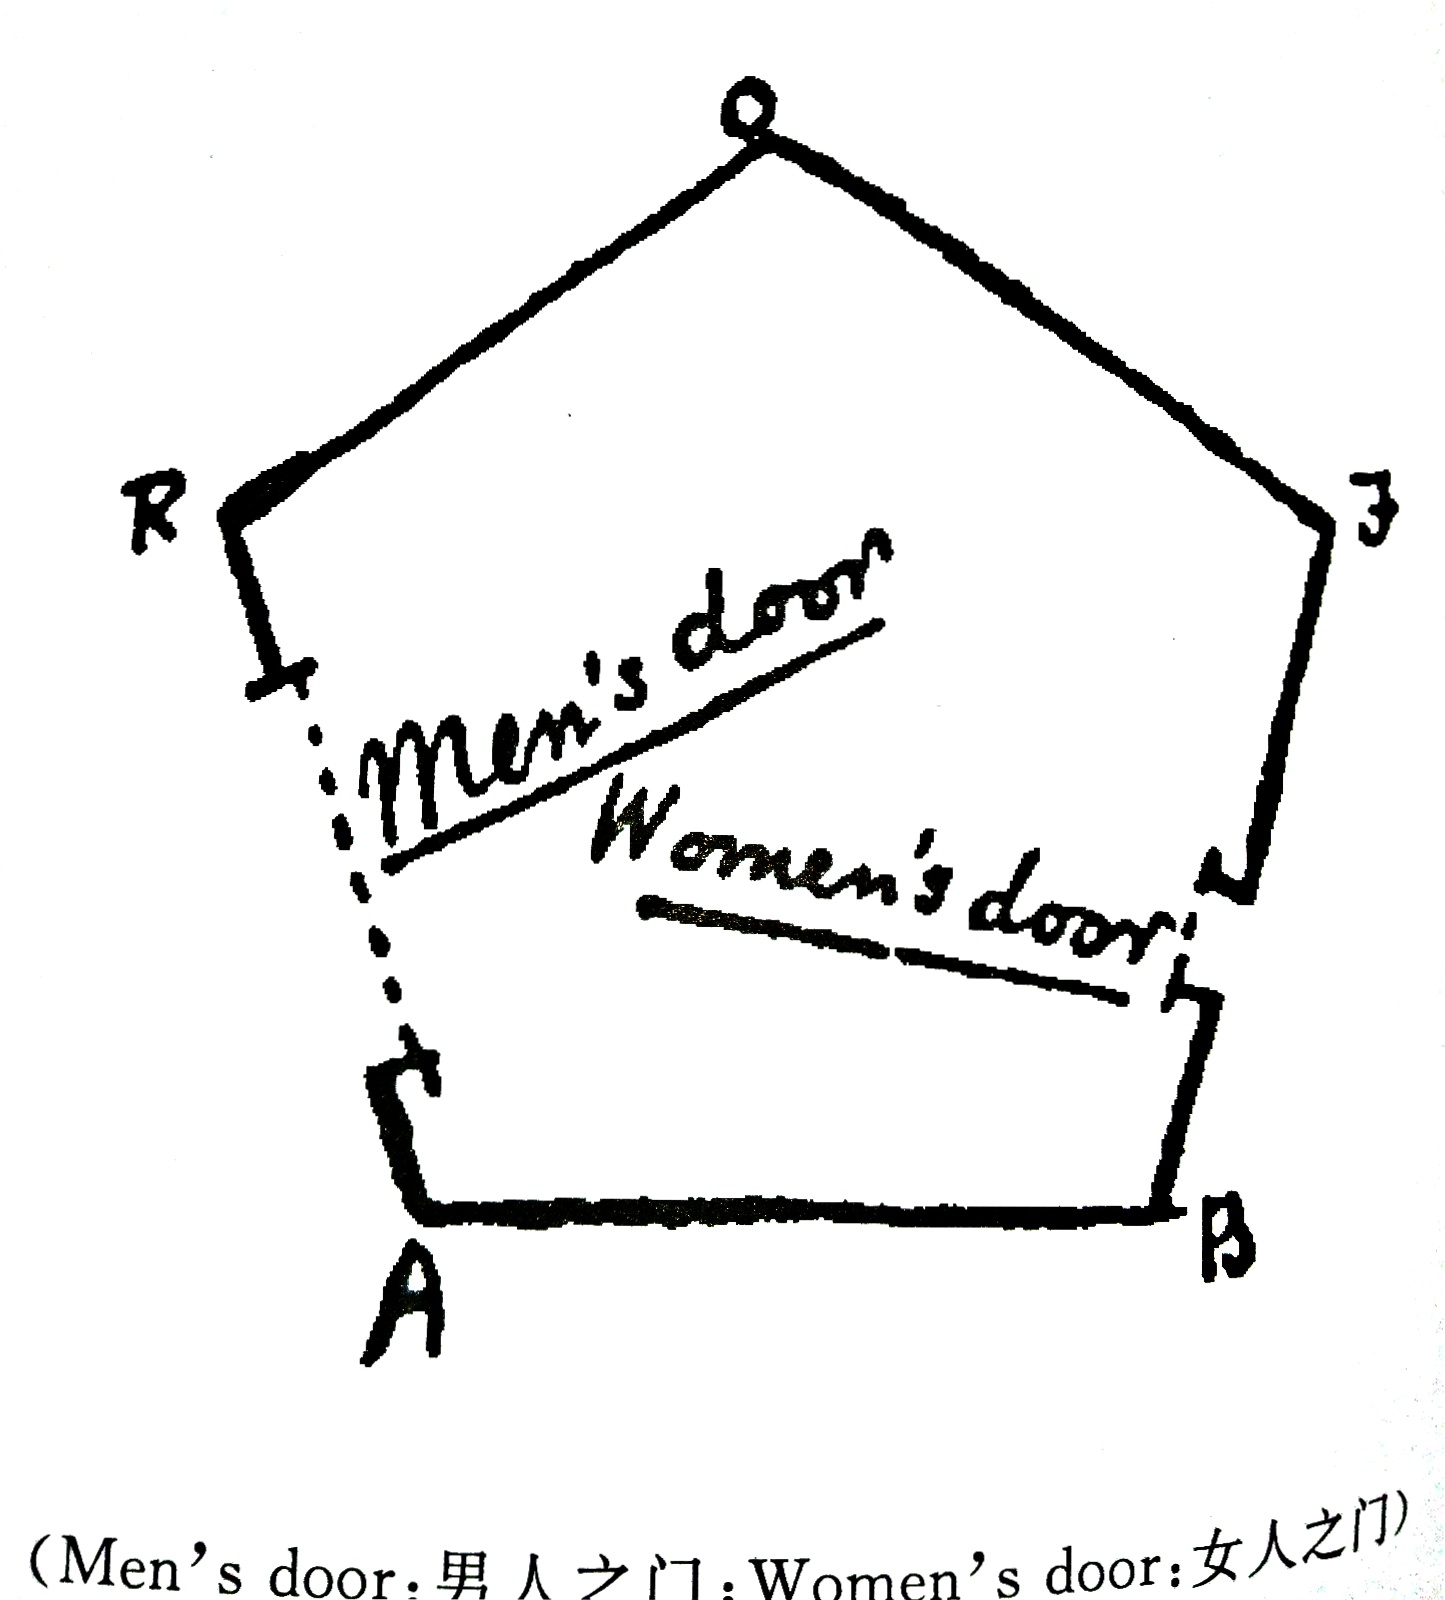 O
R
J
Men's door
Women's door
A
B
(Men's door:男人之门;Women's door:女人之门)